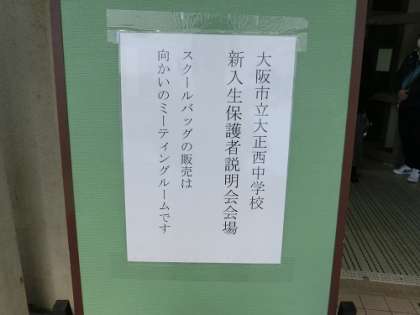 大阪市立大正西中学校
新入生保護者説明会会場
スクールバッグの販売は
向かいのミーティングルームです